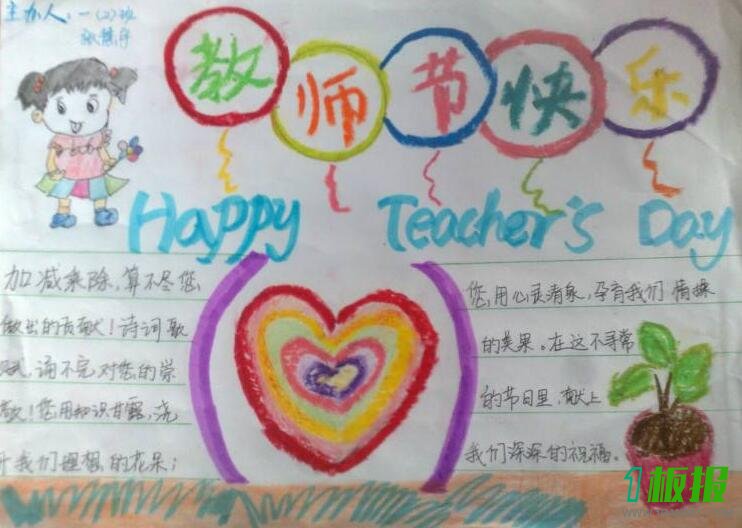 主办人：一(2)班
教师节快乐
Happy Teacher's Day
加减乘除，算不尽您
做出的贡献！诗词歌
赋，诵不完对您的崇
敬！您用知识甘露，浇
开我们理想的花朵；
您用心灵清泉，孕育我们情操
的美果。在这不寻常
的节日里，献上
我们深深的祝福。
1板报